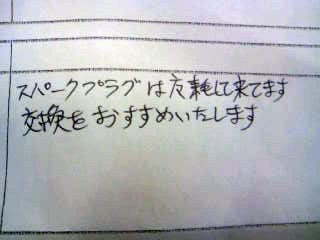 スパークプラグは方耗して来てます
交換をおすすめいたします